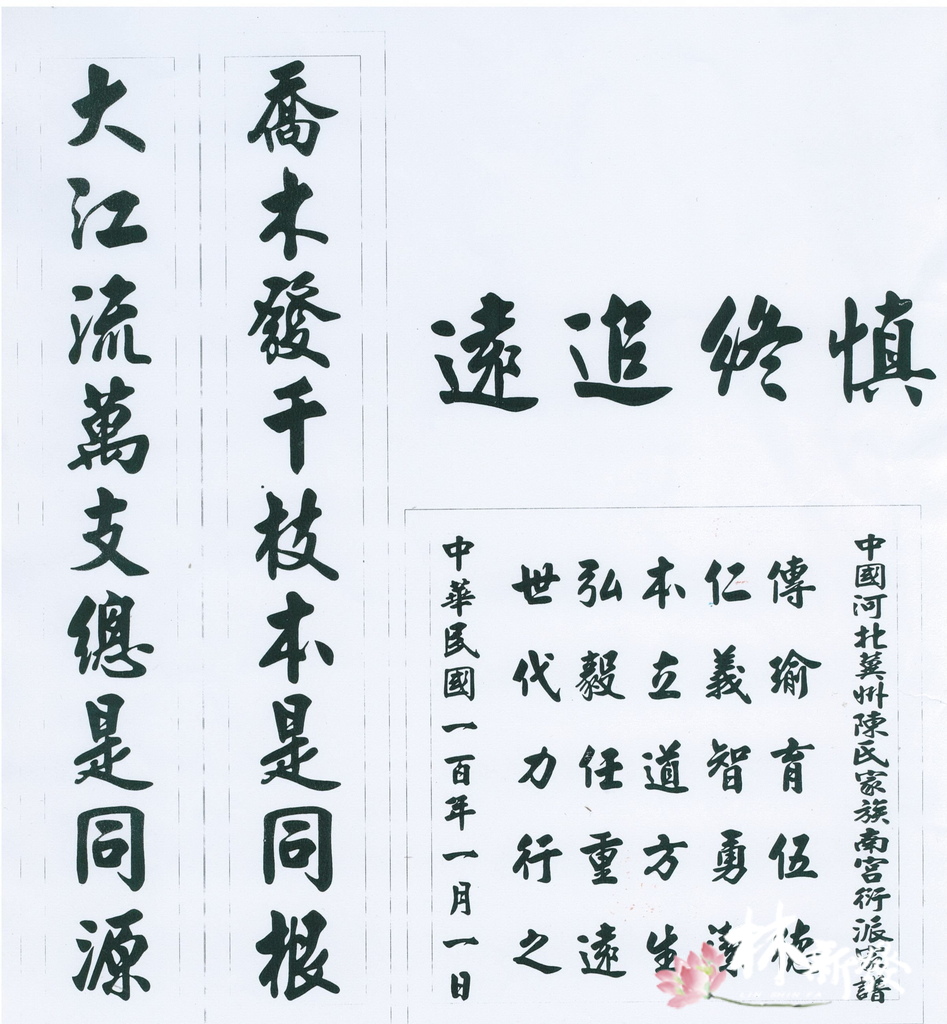 慎終追遠
中國河北冀州陳氏家族南宮衍派譜
傳瑜育伍德
仁義智勇
本立道方生
弘毅任重遠
世代力行之
中華民國一百年一月一日
喬木發千枝本是同根
大江流萬支總是同源
林新發